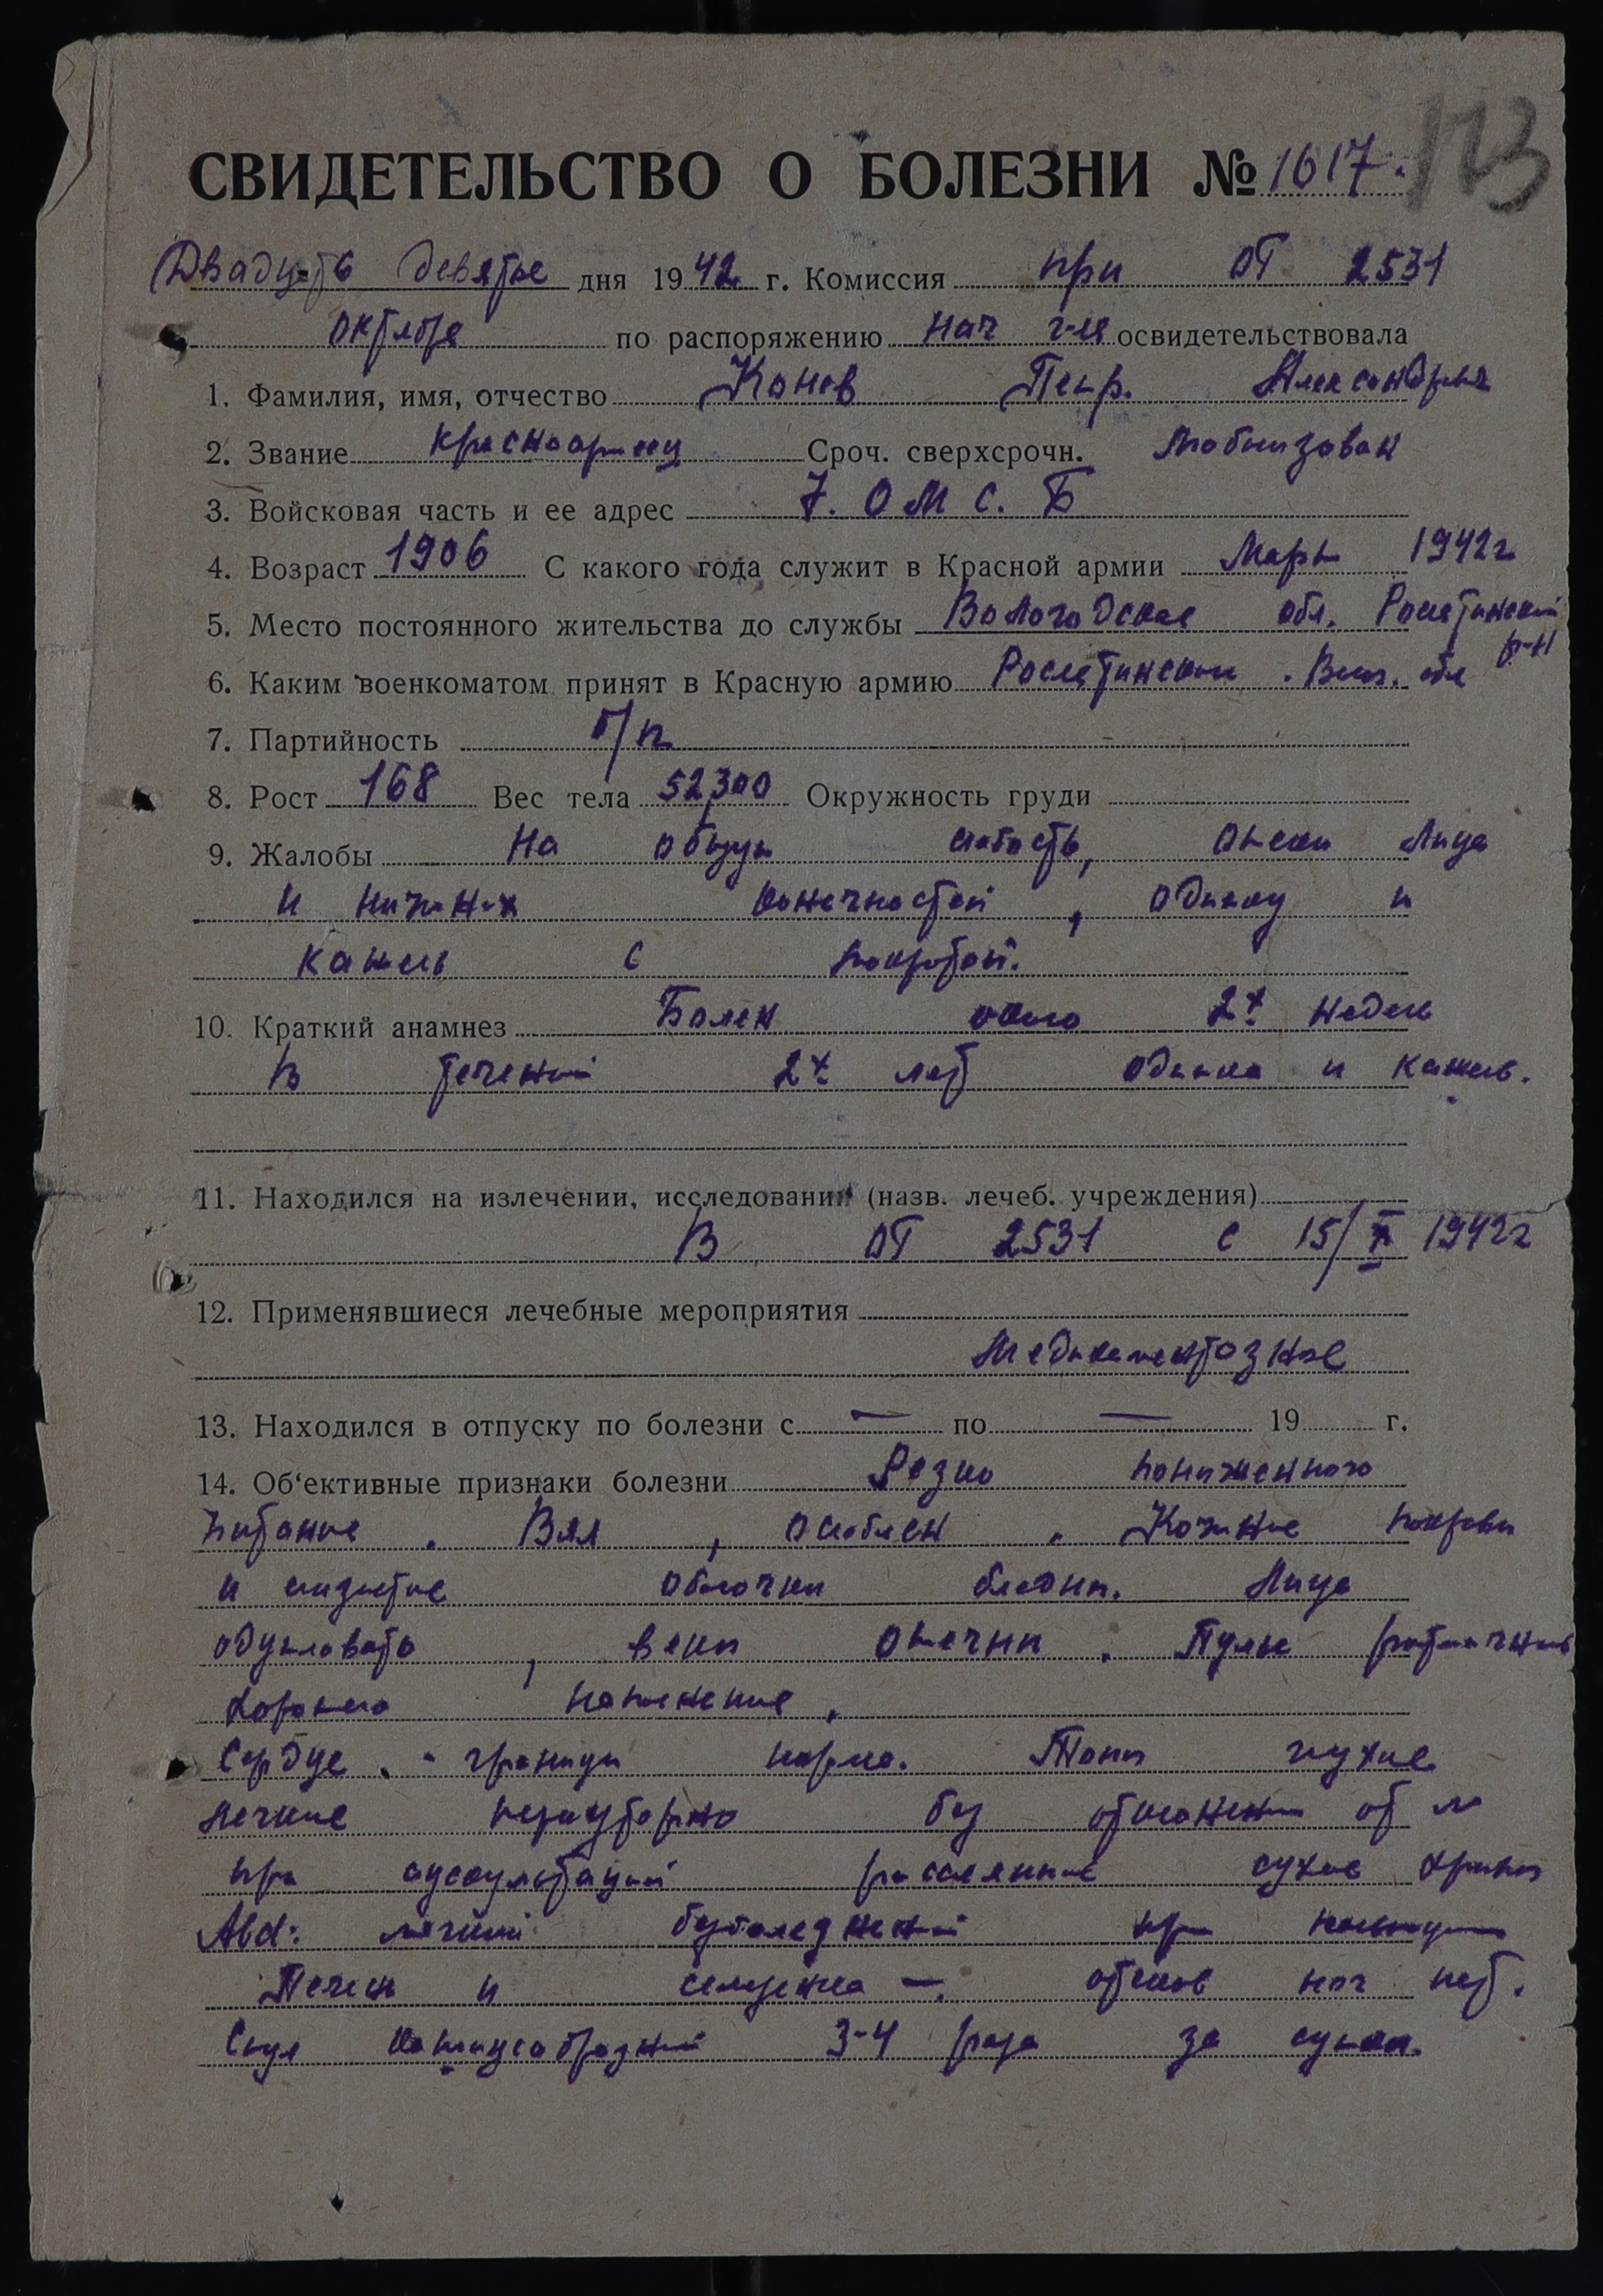 123
СВИДЕТЕЛЬСТВО О БОЛЕЗНИ № 1617.
Двадцать девятое дня 1942 г. Комиссия при ЭГ 2531
октября по распоряжению нач г-ля освидетельствовала
1. Фамилия, имя, отчество Конев Петр. Александрыч
2. Звание красноармеец Сроч. сверхсрочн. мобилизован
3. Войсковая часть и ее адрес 7. О М С. Б
4. Возраст 1906 С какого года служит в Красной армии Март 1942г
5. Место постоянного жительства до службы Вологодская обл. Рослятинский р-н
6. Каким военкоматом принят в Красную армию Рослятинским. Вол. обл
7. Партийность б/п
8. Рост 168 Вес тела 52,300 Окружность груди
9. Жалобы на общую слабость, отеки лица
и нижних конечностей, одышку и
кашель с мокротой.
10. Краткий анамнез Болен около 2х недель
В течений 2х лет одышка и кашель.
11. Находился на излечении, исследовании (назв. лечеб. учреждения)
В ЭГ 2531 с 15/X 1942г
12. Применявшиеся лечебные мероприятия
медикаментозное
13. Находился в отпуску по болезни с — по — 19 г.
14. Об‘ективные признаки болезни Резко пониженного
питание. Вял, ослаблен. Кожные покровы
и слизистые оболочки бледны. Лицо
одутловато, веки отечны. Пульс ритмичный
хорошего наполнение.
Сердце. - границы норма. Тоны глухие
легкие перкуторно без отклонении от N
при аускультации рассеянные сухие хрипы
Abd: мягкий безболезненный при пальпации
Печень и селезенка —. отеков ног нет.
Стул кашицеобразный 3-4 раза за сутки.